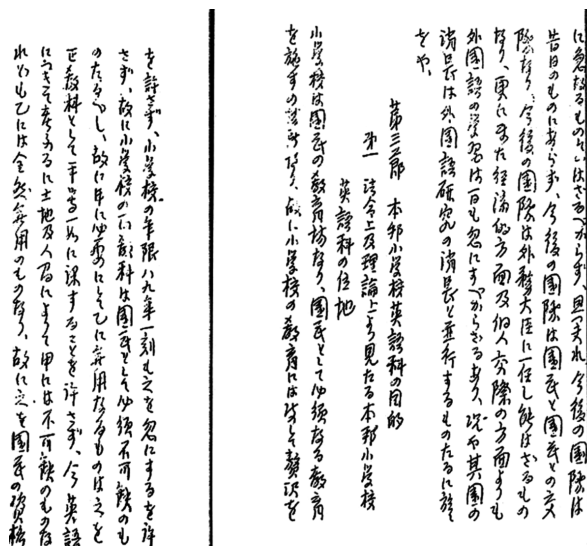 に急なるものといはざるべからず、且つ夫れ今後の国際は
昔日のものにあらず、今後の国際は国民と国民との交
際なり、今後の国際は外務大臣に一任し能はざるもの
なり、更にまた経済的方面及個人交際の方面よりも
外国語の学習は一日も忽にすべからざるあり、況や其国の
消長は外国語研究の消長と並行するものたるに於て
をや、
第三節 本邦小学校英語科の目的
第一 法令上及理論上より見たる本邦小学校
英語科の位地
小学校は国民の教育場なり、国民として必須なる教育
を施すの場所なり、故に小学校の教育には決して贅沢を
を許さず、小学校の年限八九年一刻も之を忽にするを許
さず、故に小学校の一切教科は国民として必須不可欠のも
のたるべし、故に甲に必要にして乙に無用なるものは之を
正教科として平等一如に課することを許さず、今英語
につきて考ふるに土地及人為によりて甲には不可欠のものな
れども乙には全然無用のものなり、故に之を国民の資格